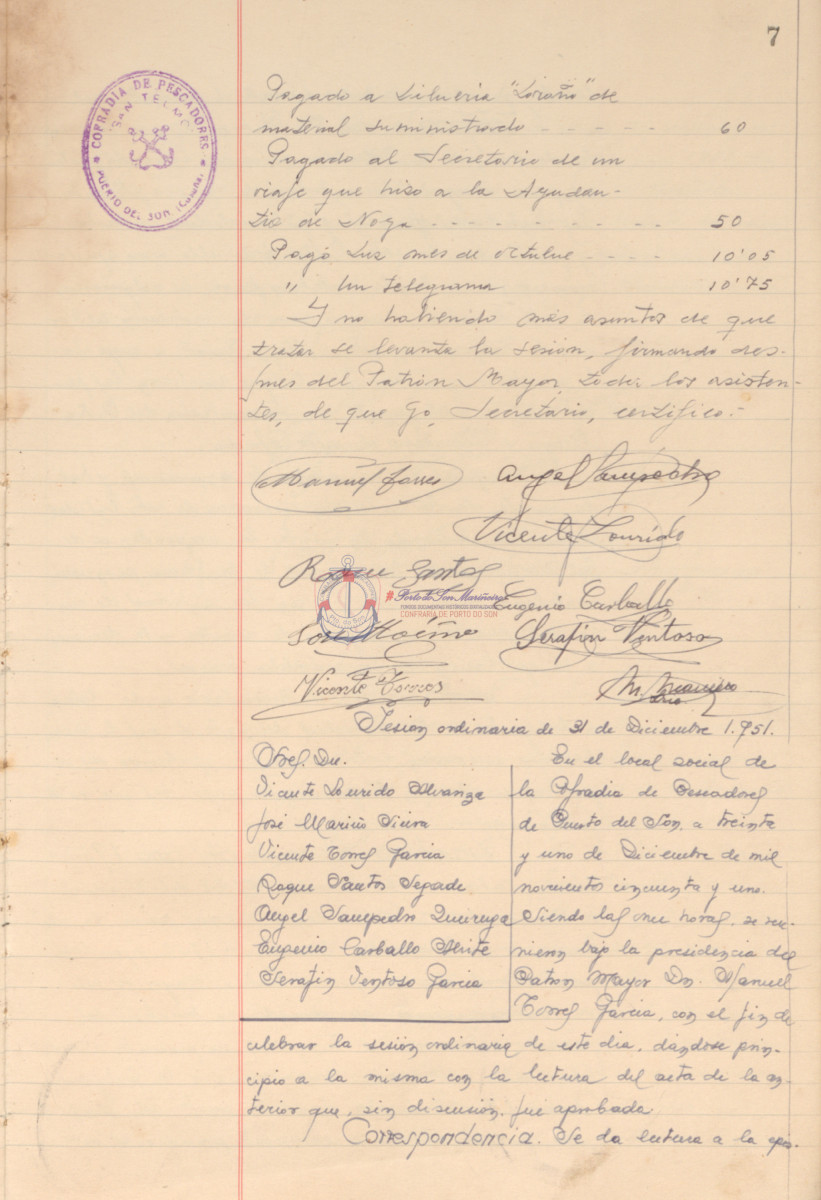 7
COFRADIA DE PESCADORES
SAN TELMO
PUERTO DEL SON (Coruña)
Pagado a Libreria "Loroño" de
material suministrado - - - - - 60
Pagado al Secretario de un
viaje que hiso a la Ayudan-
tia de Noya - - - - - - - - - 50
Pagó Luz mes de octubre - - - - 10'05
" Un telegrama 10'75
Y no habiendo más asuntos de que
tratar se levanta la sesión, firmando des-
pues del Patrón Mayor, todos los asisten-
tes, de que Yo, Secretario, certifico.-
Manuel Torres Angel Sampedro
Vicente Lourido
Roque Santos
#PortodoSonMariñeiro
FONDOS DOCUMENTAIS HISTÓRICOS DIXITALIZADOS
CONFRARÍA DE PORTO DO SON
Eugenio Carballo
José Mariño Serafin Ventoso
Vicente Torres M.
Sesion ordinaria de 31 de Diciembre 1.951.
Sres. Dn. En el local social de
Vicente Lourido Alvariza la Cofradia de Pescadores
José Mariño Sieira de Puerto del Son, a treinta
Vicente Torres Garcia y uno de Diciembre de mil
Roque Santos Segade novecientos cincuenta y uno.
Angel Sampedro Quiruga Siendo las once horas, se reu-
Eugenio Carballo nieron bajo la presidencia del
Serafin Ventoso Garcia Patron Mayor Dn. Manuel
Torres Garcia, con el fin de
celebrar la sesión ordinaria de este dia, dándose prin-
cipio a la misma con la lectura del acta de la an-
terior que, sin discusión, fué aprobada.
Correspondencia. Se da lectura a la